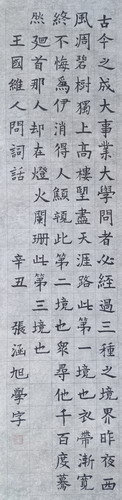 古今之成大事業大學問者必經過三種之境界昨夜西
風凋碧樹獨上高樓望盡天涯路此第一境也衣帶漸寬
終不悔為伊消得人顦顇此第二境也眾尋他千百度驀
然廻首那人却在燈火闌珊此第三境也
王國維人間詞話 辛丑 張涵旭學字